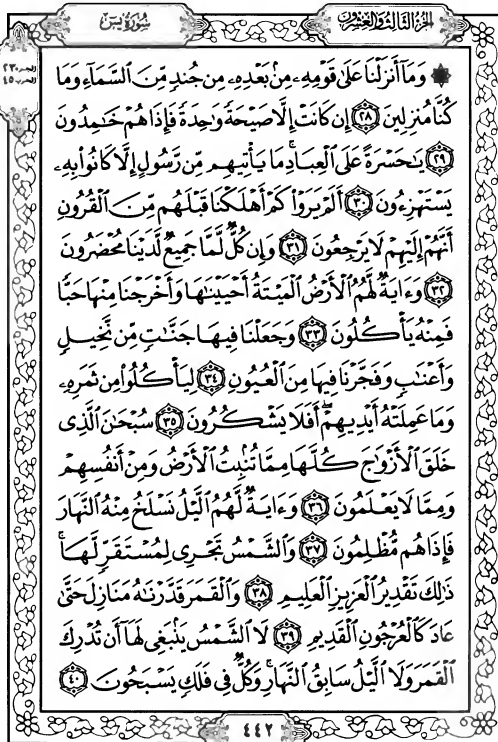 الجزء الثالث والعشرون
سورة يس
۞ وَمَآ أَنزَلْنَا عَلَىٰ قَوْمِهِۦ مِنۢ بَعْدِهِۦ مِن جُندٍ مِّنَ ٱلسَّمَآءِ وَمَا
كُنَّا مُنزِلِينَ ٢٨ إِن كَانَتْ إِلَّا صَيْحَةً وَٰحِدَةً فَإِذَا هُمْ خَٰمِدُونَ
٢٩ يَٰحَسْرَةً عَلَى ٱلْعِبَادِ ۚ مَا يَأْتِيهِم مِّن رَّسُولٍ إِلَّا كَانُوا۟ بِهِۦ
يَسْتَهْزِءُونَ ٣٠ أَلَمْ يَرَوْا۟ كَمْ أَهْلَكْنَا قَبْلَهُم مِّنَ ٱلْقُرُونِ
أَنَّهُمْ إِلَيْهِمْ لَا يَرْجِعُونَ ٣١ وَإِن كُلٌّ لَّمَّا جَمِيعٌ لَّدَيْنَا مُحْضَرُونَ
٣٢ وَءَايَةٌ لَّهُمُ ٱلْأَرْضُ ٱلْمَيْتَةُ أَحْيَيْنَٰهَا وَأَخْرَجْنَا مِنْهَا حَبًّا
فَمِنْهُ يَأْكُلُونَ ٣٣ وَجَعَلْنَا فِيهَا جَنَّٰتٍ مِّن نَّخِيلٍ
وَأَعْنَٰبٍ وَفَجَّرْنَا فِيهَا مِنَ ٱلْعُيُونِ ٣٤ لِيَأْكُلُوا۟ مِن ثَمَرِهِۦ
وَمَا عَمِلَتْهُ أَيْدِيهِمْ ۖ أَفَلَا يَشْكُرُونَ ٣٥ سُبْحَٰنَ ٱلَّذِى
خَلَقَ ٱلْأَزْوَٰجَ كُلَّهَا مِمَّا تُنۢبِتُ ٱلْأَرْضُ وَمِنْ أَنفُسِهِمْ
وَمِمَّا لَا يَعْلَمُونَ ٣٦ وَءَايَةٌ لَّهُمُ ٱلَّيْلُ نَسْلَخُ مِنْهُ ٱلنَّهَارَ
فَإِذَا هُم مُّظْلِمُونَ ٣٧ وَٱلشَّمْسُ تَجْرِى لِمُسْتَقَرٍّ لَّهَا ۚ
ذَٰلِكَ تَقْدِيرُ ٱلْعَزِيزِ ٱلْعَلِيمِ ٣٨ وَٱلْقَمَرَ قَدَّرْنَٰهُ مَنَازِلَ حَتَّىٰ
عَادَ كَٱلْعُرْجُونِ ٱلْقَدِيمِ ٣٩ لَا ٱلشَّمْسُ يَنۢبَغِى لَهَآ أَن تُدْرِكَ
ٱلْقَمَرَ وَلَا ٱلَّيْلُ سَابِقُ ٱلنَّهَارِ ۚ وَكُلٌّ فِى فَلَكٍ يَسْبَحُونَ ٤٠
٤٤٢